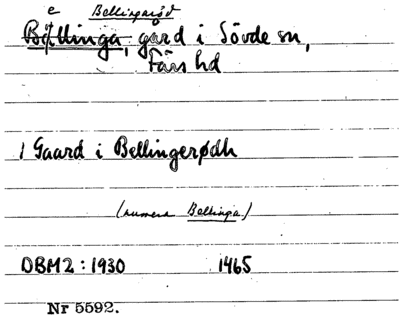 e Bellingaröd
Bällinga, gård i Sövde sn,
Färs hd
1 Gaard i Bellingerødh
(numera Bellinga)
DBM2:1930 1465
Nr 5592.